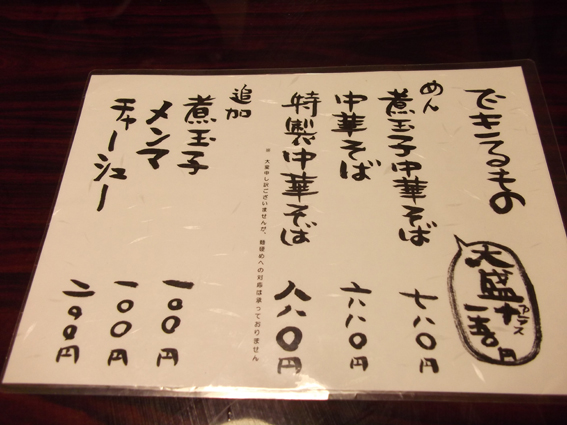 できるもの
大盛プラス
十一五〇円
めん
煮玉子中華そば 七八〇円
中華そば 六八〇円
特製中華そば 八八〇円
※ 大変申し訳ございませんが、麺硬めへの対応は承っておりません
追加
煮玉子 一〇〇円
メンマ 一〇〇円
チャーシュー 二〇〇円